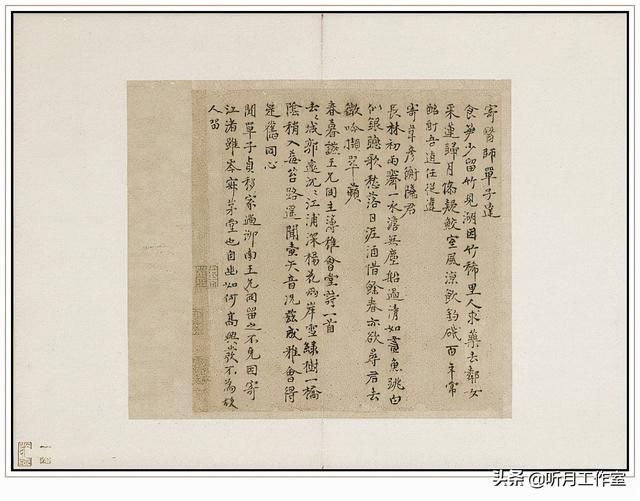 寄醫師單子達
食筍少留竹見湖因竹稀里人求藥去鄰女
采蓮歸月鮫室風涼飲釣磯百年常
酩酊吾道任從違
寄彥衡隱君
長林初雨霽一水澹無塵船過清如畫魚跳白
似銀聽歌愁落日酒惜餘春亦欲尋君去
微吟擷翠蘋
春暮讌王允同主簿雅會堂詩一首
去〻城郭遠沉〻江浦深楊花兩岸雪綠樹一橋
陰稍入莓苔路還聞壺矢音況茲成雅會得
是舊同心
聞單子貞移家過泖南王允同留之不見因寄
江渚雖岑寂茅堂也自幽如何高興發不為故
人留
头条 @听月工作室